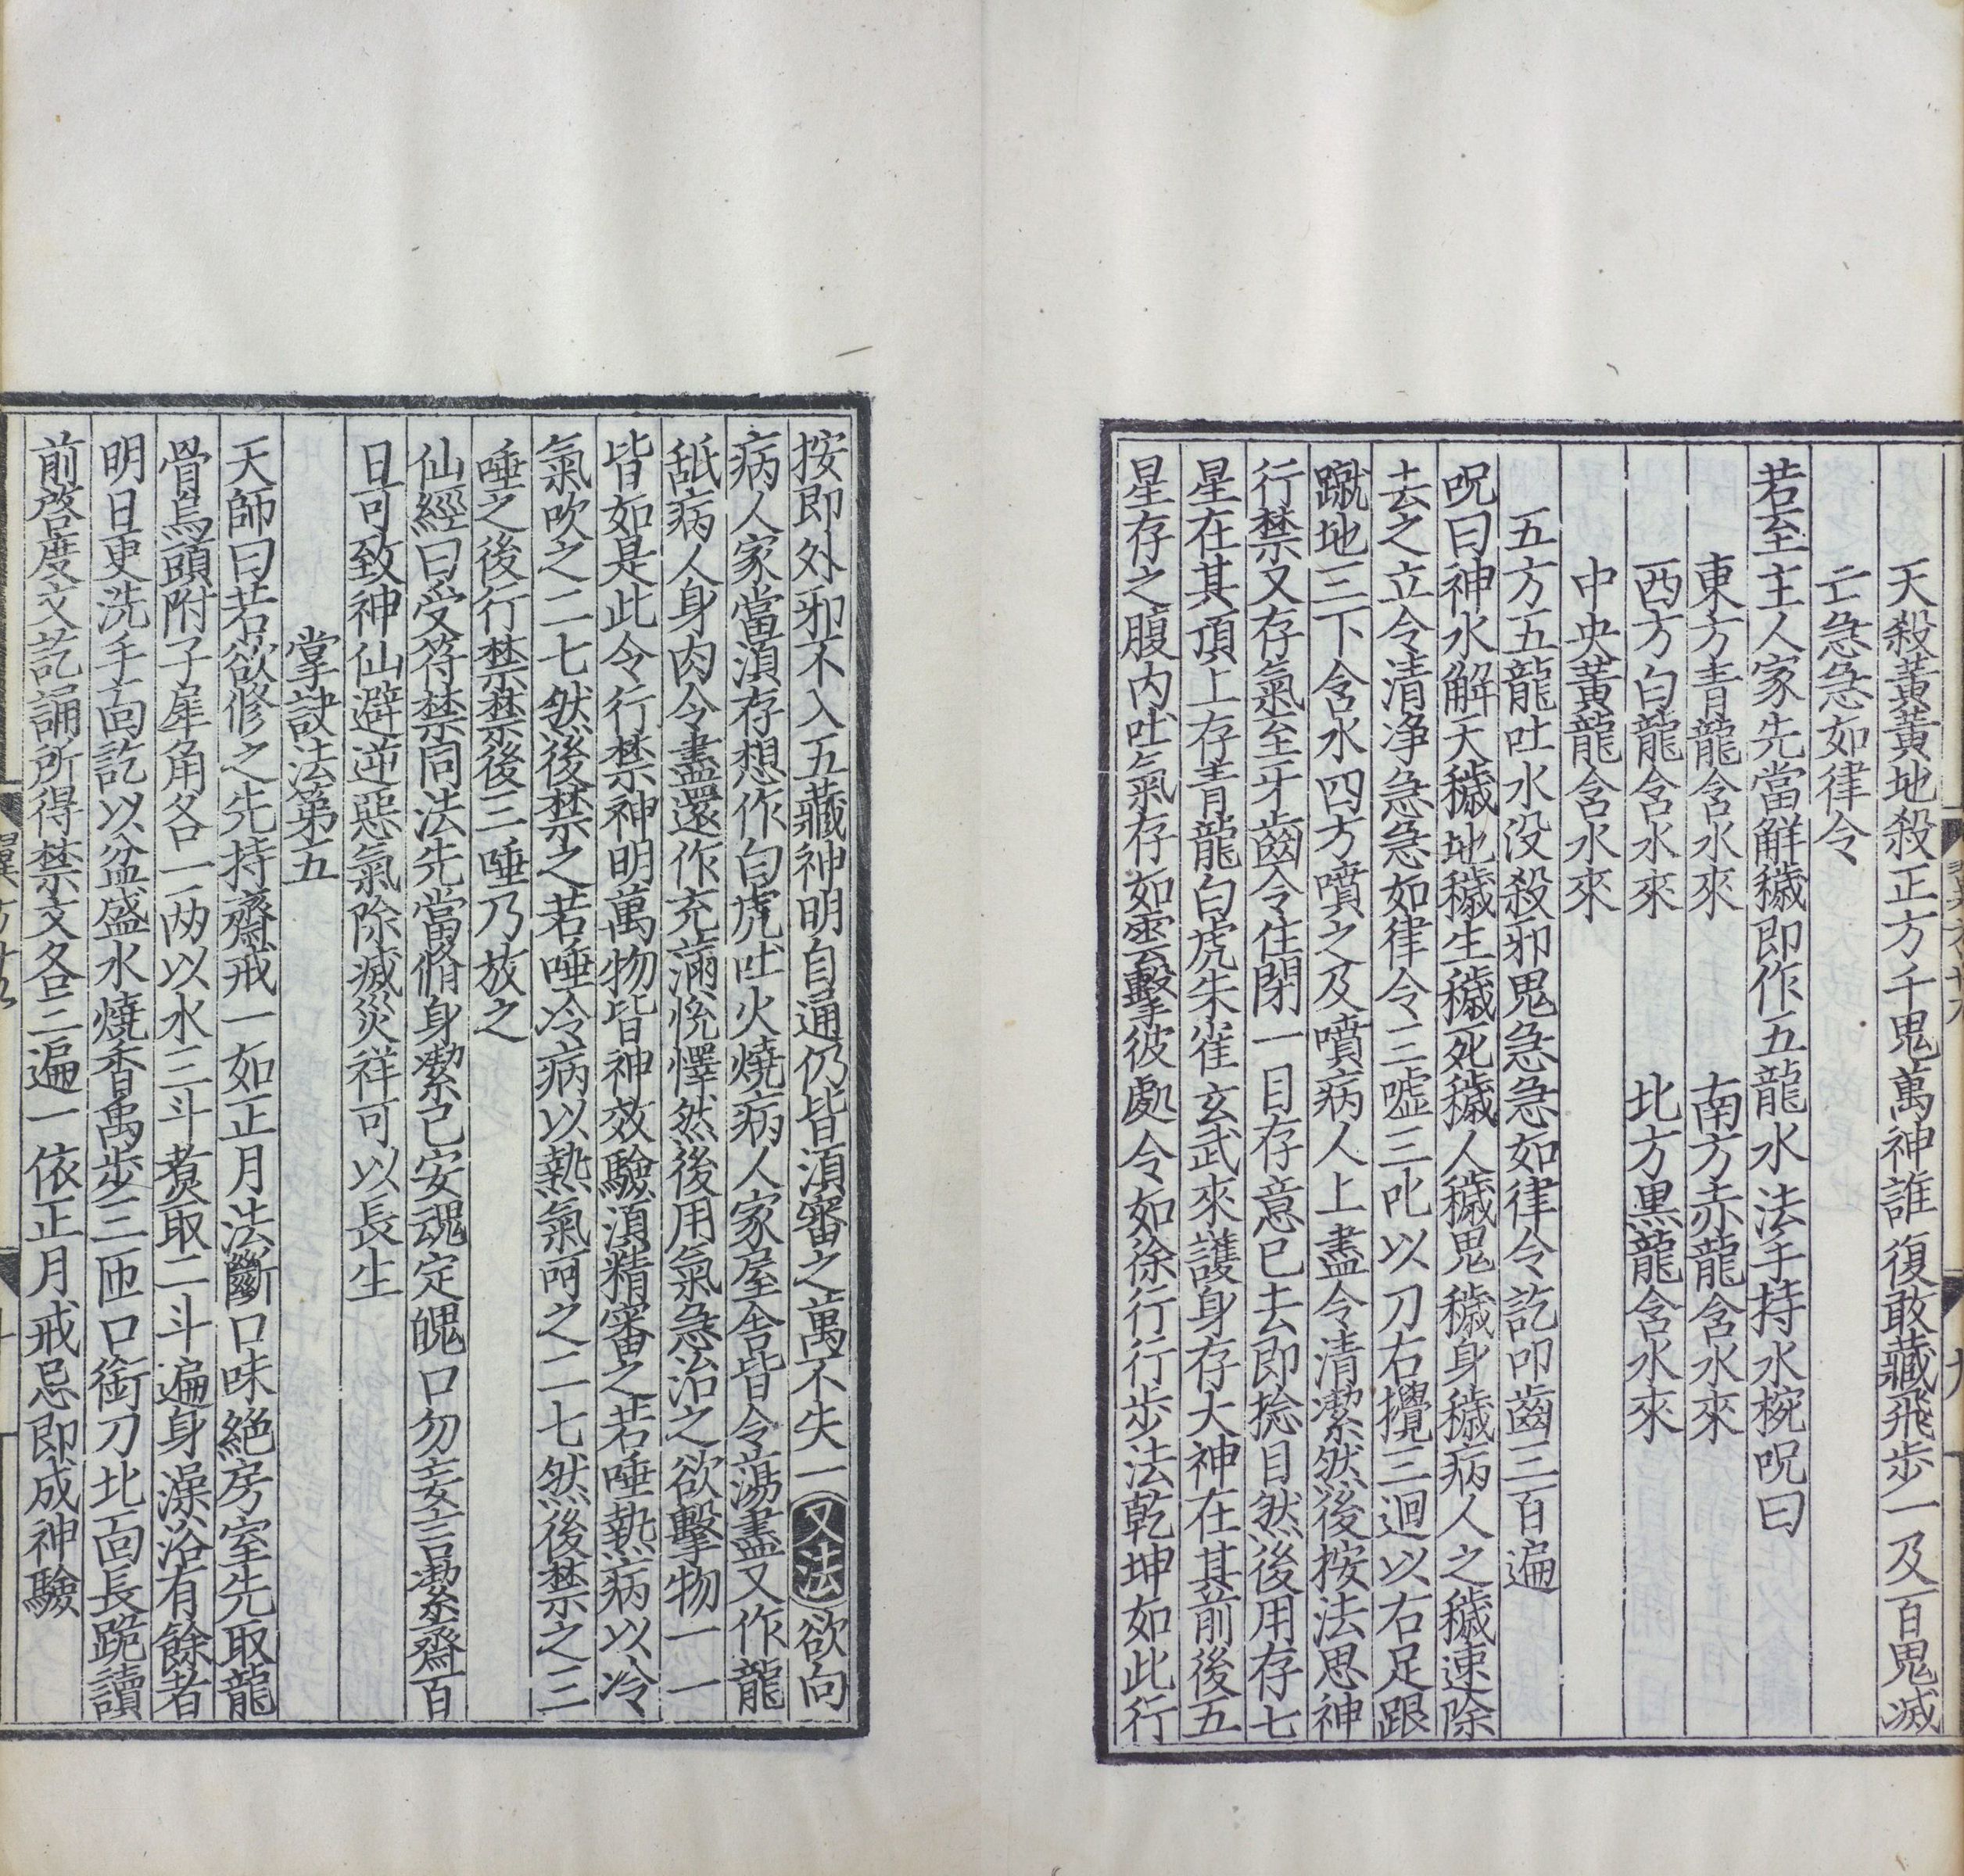 天殺黃黃地殺正方千鬼萬神誰復敢藏飛步一及百鬼滅
亡急急如律令
若至主人家先當解穢即作五龍水法手持水椀呪曰
東方青龍含水來 南方赤龍含水來
西方白龍含水來 北方黑龍含水來
中央黃龍含水來
五方五龍吐水没殺邪鬼急急如律令訖叩齒三百遍
呪曰神水解天穢地穢生穢死穢人穢鬼穢身穢病人之穢速除
去之立令清淨急急如律令三噓三叱以刀右攪三迴以右足跟
蹴地三下含水四方噴之及噴病人上盡令清潔然後按法思神
行禁又存氣至牙齒令住閉一目存意已去即捻目然後用存七
星在其頂上存青龍白虎朱雀玄武來護身存大神在其前後五
星存之腹内吐氣存如雲擊彼處令如徐行行步法乾坤如此行
按即外邪不入五藏神明自通仍皆須審之萬不失一又法欲向
病人家當須存想作白虎吐火燒病人家屋舍皆令蕩盡又作龍
舐病人身肉令盡還作充滿悅懌然後用氣急治之欲擊物一一
皆如是此令行禁神明萬物皆神效驗須精審之若唾熱病以冷
氣吹之二七然後禁之若唾冷病以熱氣呵之二七然後禁之三
唾之後行禁禁後三唾乃放之
仙經曰受符禁同法先當脩身潔己安魂定魄口勿妄言潔齋百
日可致神仙避逆惡氣除滅災祥可以長生
掌訣法第五
天師曰若欲修之先持齋戒一如正月法斷口味絕房室先取龍
骨烏頭附子犀角各一兩以水三斗煮取二斗遍身澡浴有餘者
明日更洗手面訖以盆盛水燒香禹步三匝口銜刀北面長跪讀
前啓度文訖誦所得禁文各三遍一依正月戒忌即成神驗